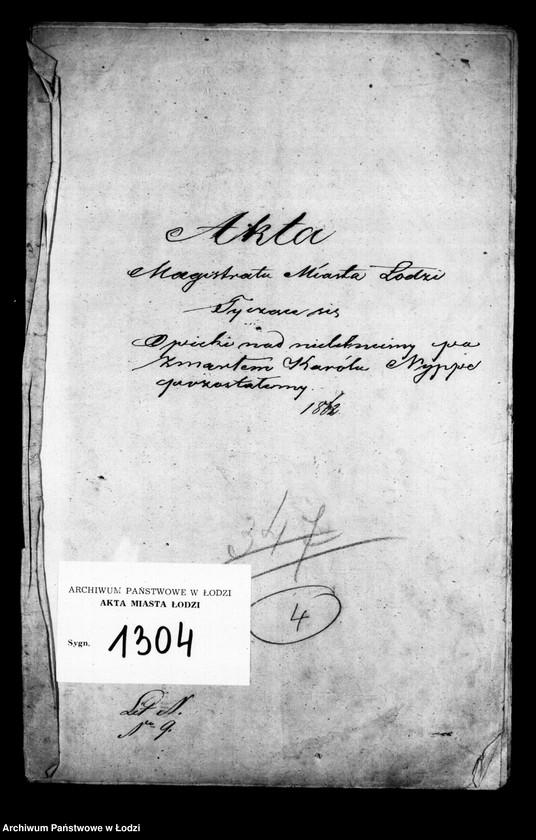 Akta
Magistratu Miasta Łodzi
Tyczące się
Opieki nad nieletniemi po
zmarłem Karólu Nyppe
pozostałemy.
347
4
ARCHIWUM PAŃSTWOWE W ŁODZI
AKTA MIASTA ŁODZI
Sygn. 1304
Lit N.
Nr 9.
Archiwum Państwowe w Łodzi